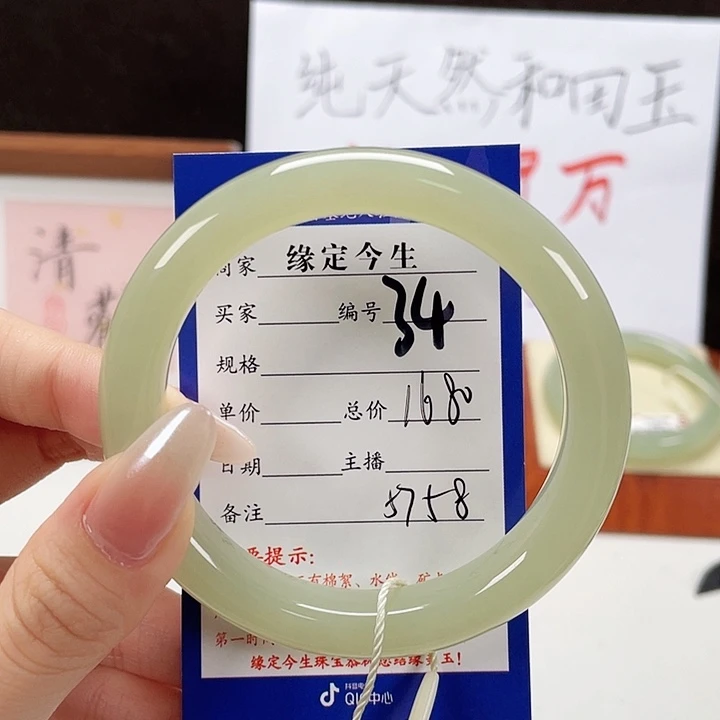 纯天然和田玉
万
清
商家 缘定今生
买家 编号 34
规格
单价 总价 1680
日期 主播
备注 5758
提示:
有棉絮、水
第一时
缘定今生珠宝恭
玉!
抖音电
QIC中心